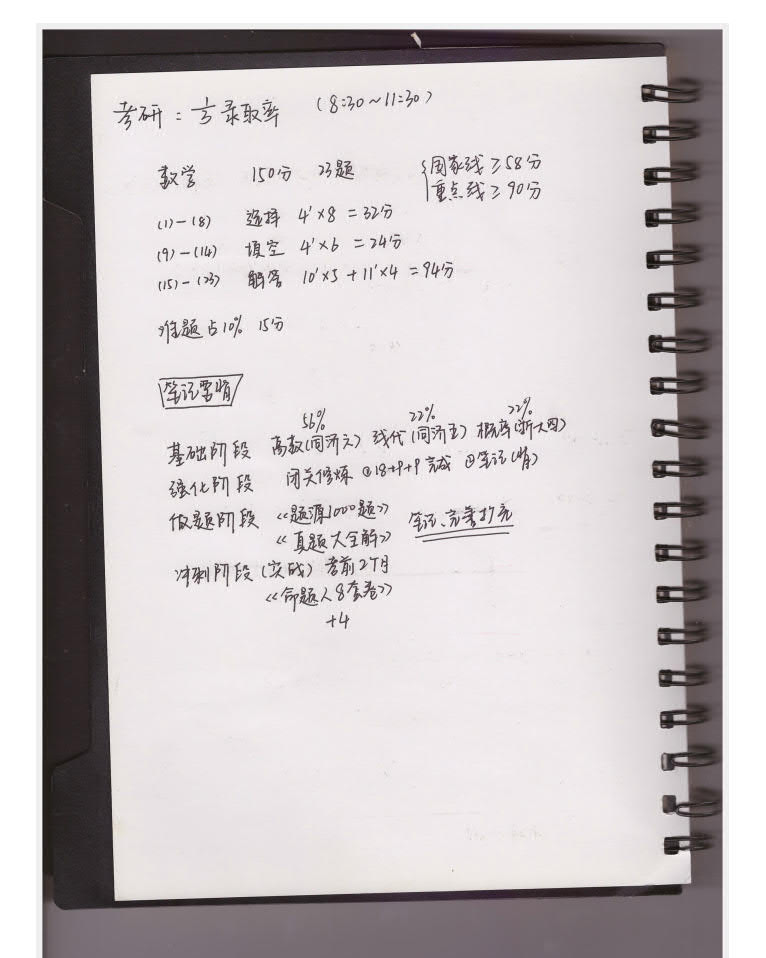 考研：1/3 录取率 （8:30～11:30）
数学 150分 23题 {国家线≥58分
重点线≥90分
(1)-(8) 选择 4'×8=32分
(9)-(14) 填空 4'×6=24分
(15)-(23) 解答 10'×5+11'×4=94分
难题占10% 15分
笔记要悄
56% 22% 22%
基础阶段 高数(同济六) 线代(同济五) 概率(浙大四)
强化阶段 闭关修炼 ①18+9+9完成 ②笔记(悄)
做题阶段 《题源1000题》 笔记、完善扩充
《真题大全解》
冲刺阶段(实战) 考前2个月
《命题人8套卷》
+4